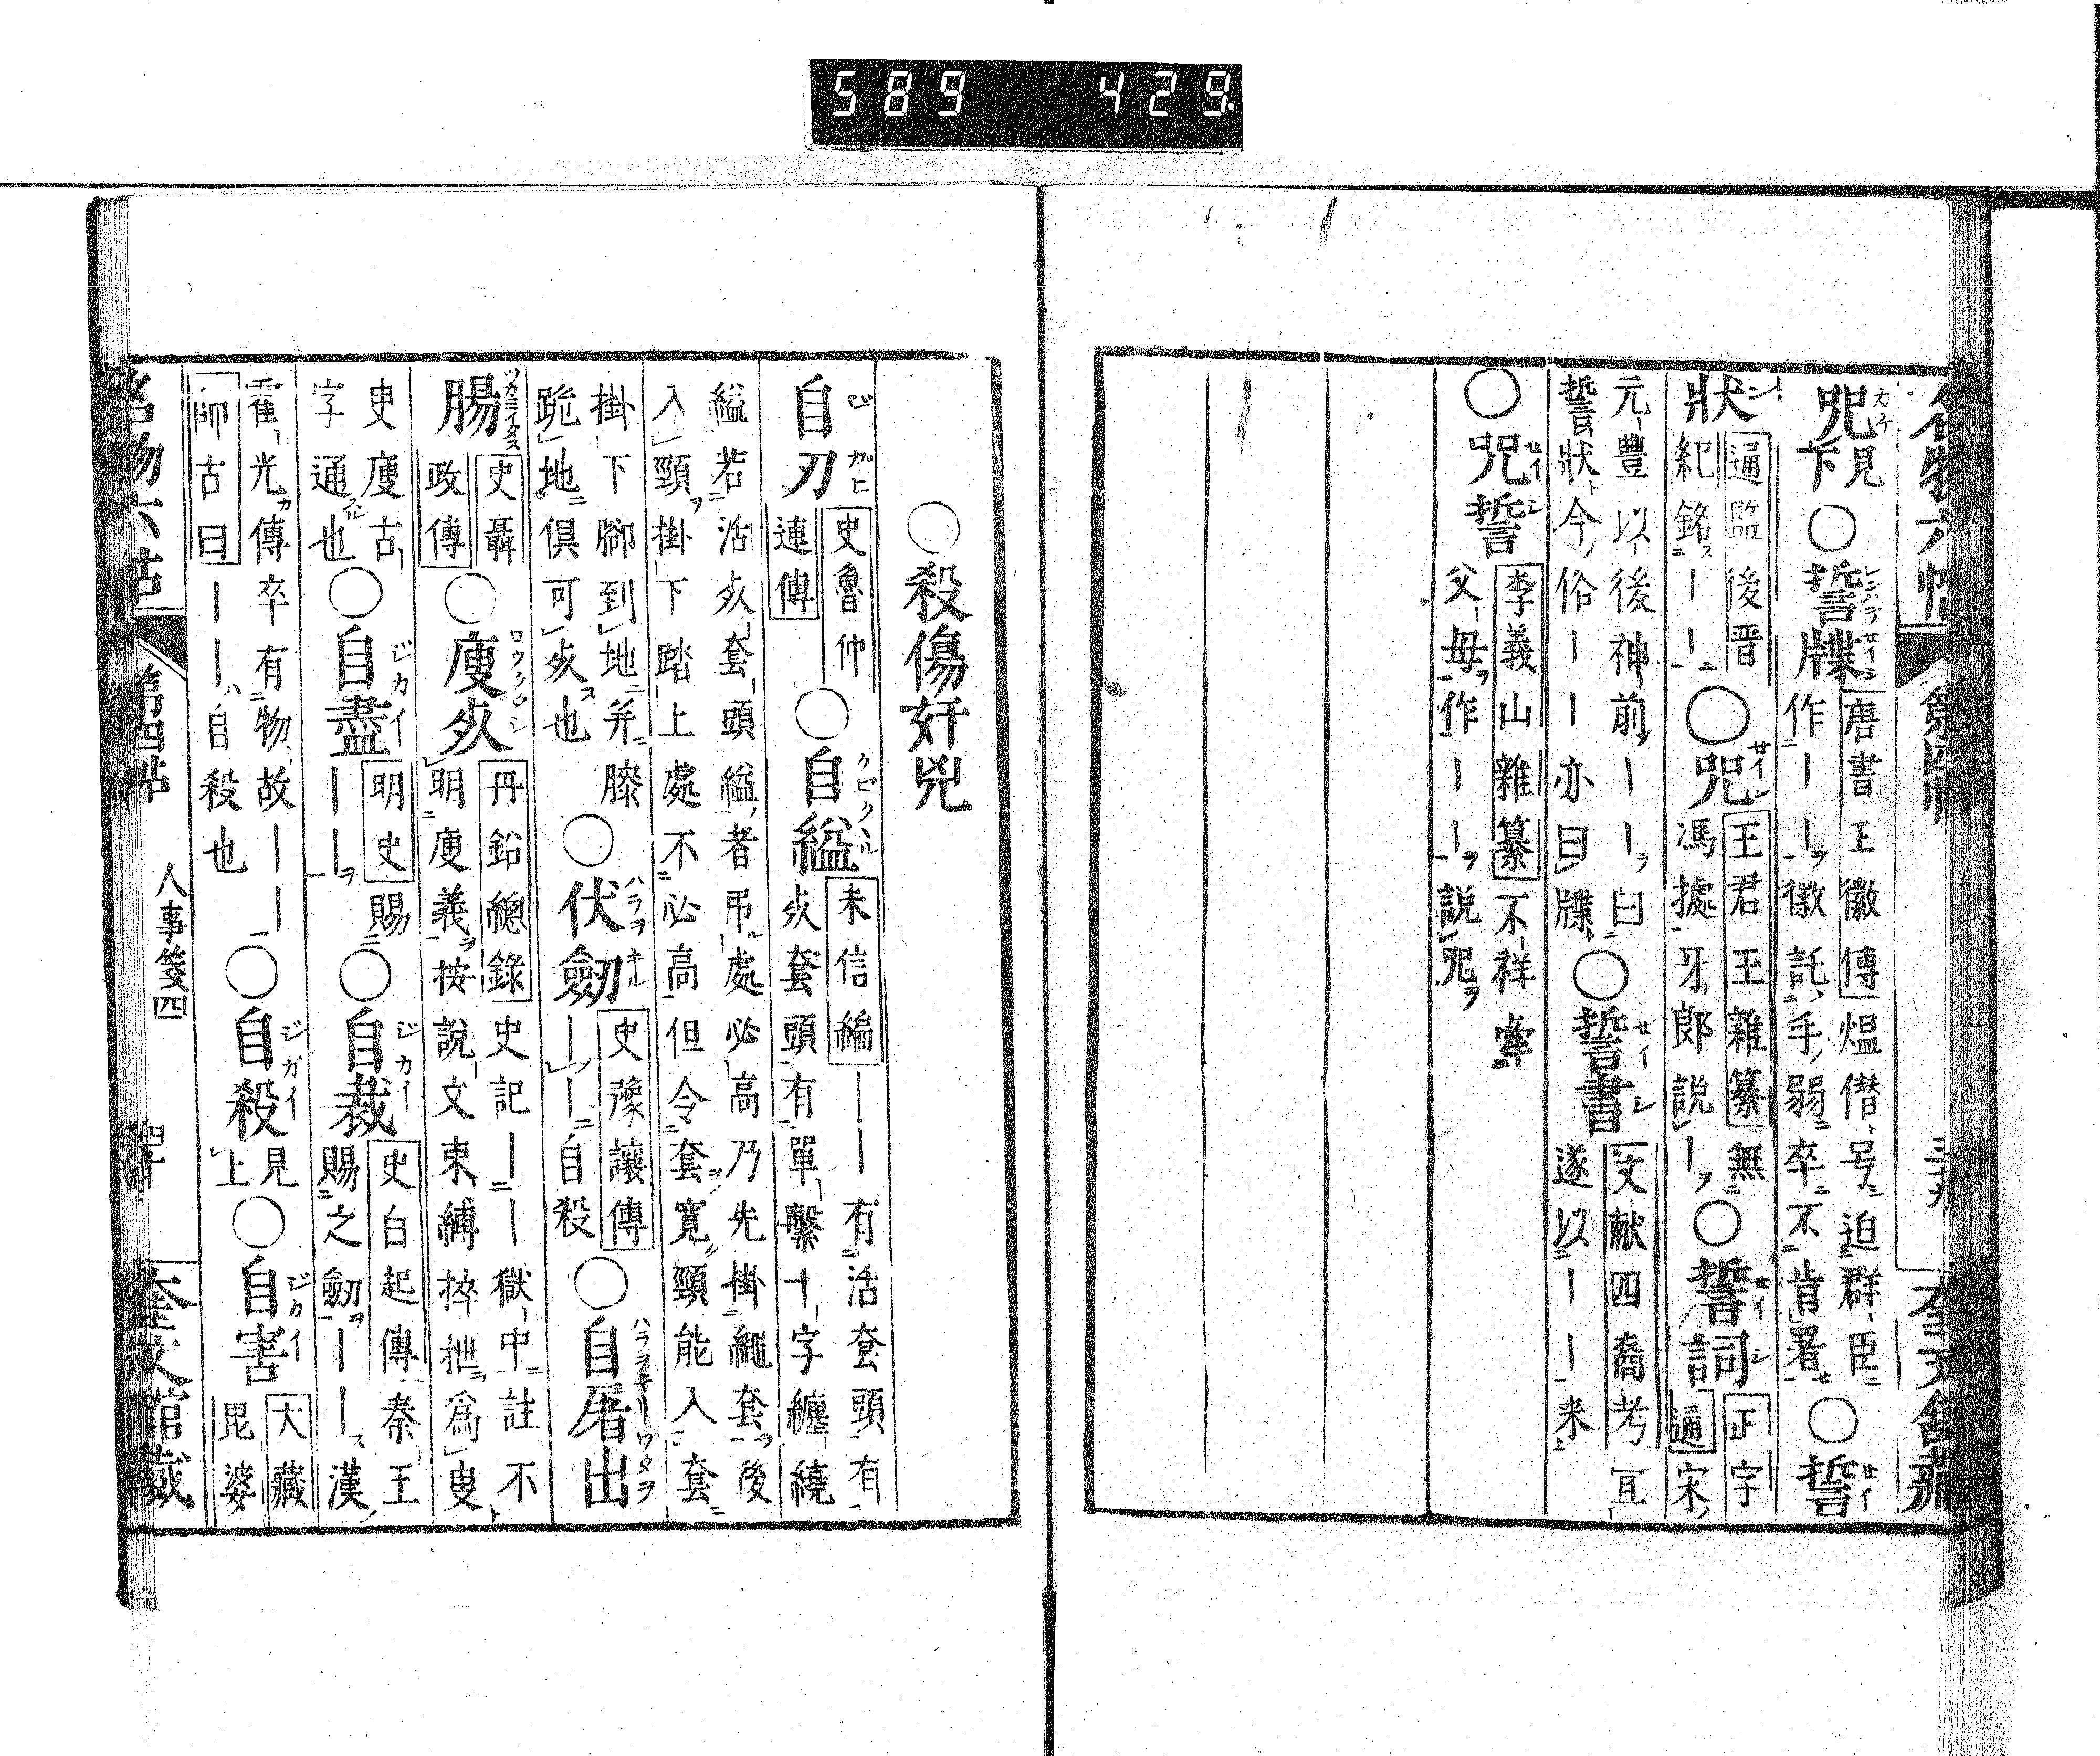 589 429
名物六帖 第四帖
咒 見下 ○誓牒 唐書王徽傳 熅僣号迫群臣作――徽託手弱卒不肯署 ○誓
狀 通監後晋紀 銘―― ○咒 王君玉雜纂 無馮據牙郎説― ○誓詞 正字通 宋
元豐以後神前――曰誓狀今俗――亦曰牒 ○誓書 文献四裔考 亙遂以――来
○咒誓 李義山雜纂 不祥牽父母作――説咒
○殺傷奸兇
自刃 史魯仲連傳 ○自縊 未信編 ――有活套頭有死套頭有單繫十字纏繞
縊若活死套頭縊者吊處必高乃先掛繩套後入頸掛下踏上處不必高但令套寛頸能入套
掛下脚到地并膝跪地俱可死也 ○伏劒 史豫讓傳 ――自殺 ○自屠出
腸 史聶政傳 ○廋死 丹鉛總錄 史記――獄中註不明廋義按說文束縛捽抴爲臾
史廋古字通也 ○自盡 明史 賜―― ○自裁 史白起傳 秦王賜之劒――漢
霍光傳 卒有物故――師古曰――自殺也 ○自殺 見上 ○自害 大藏毘婆
名物六帖 第四帖 人事箋四 奎文館藏